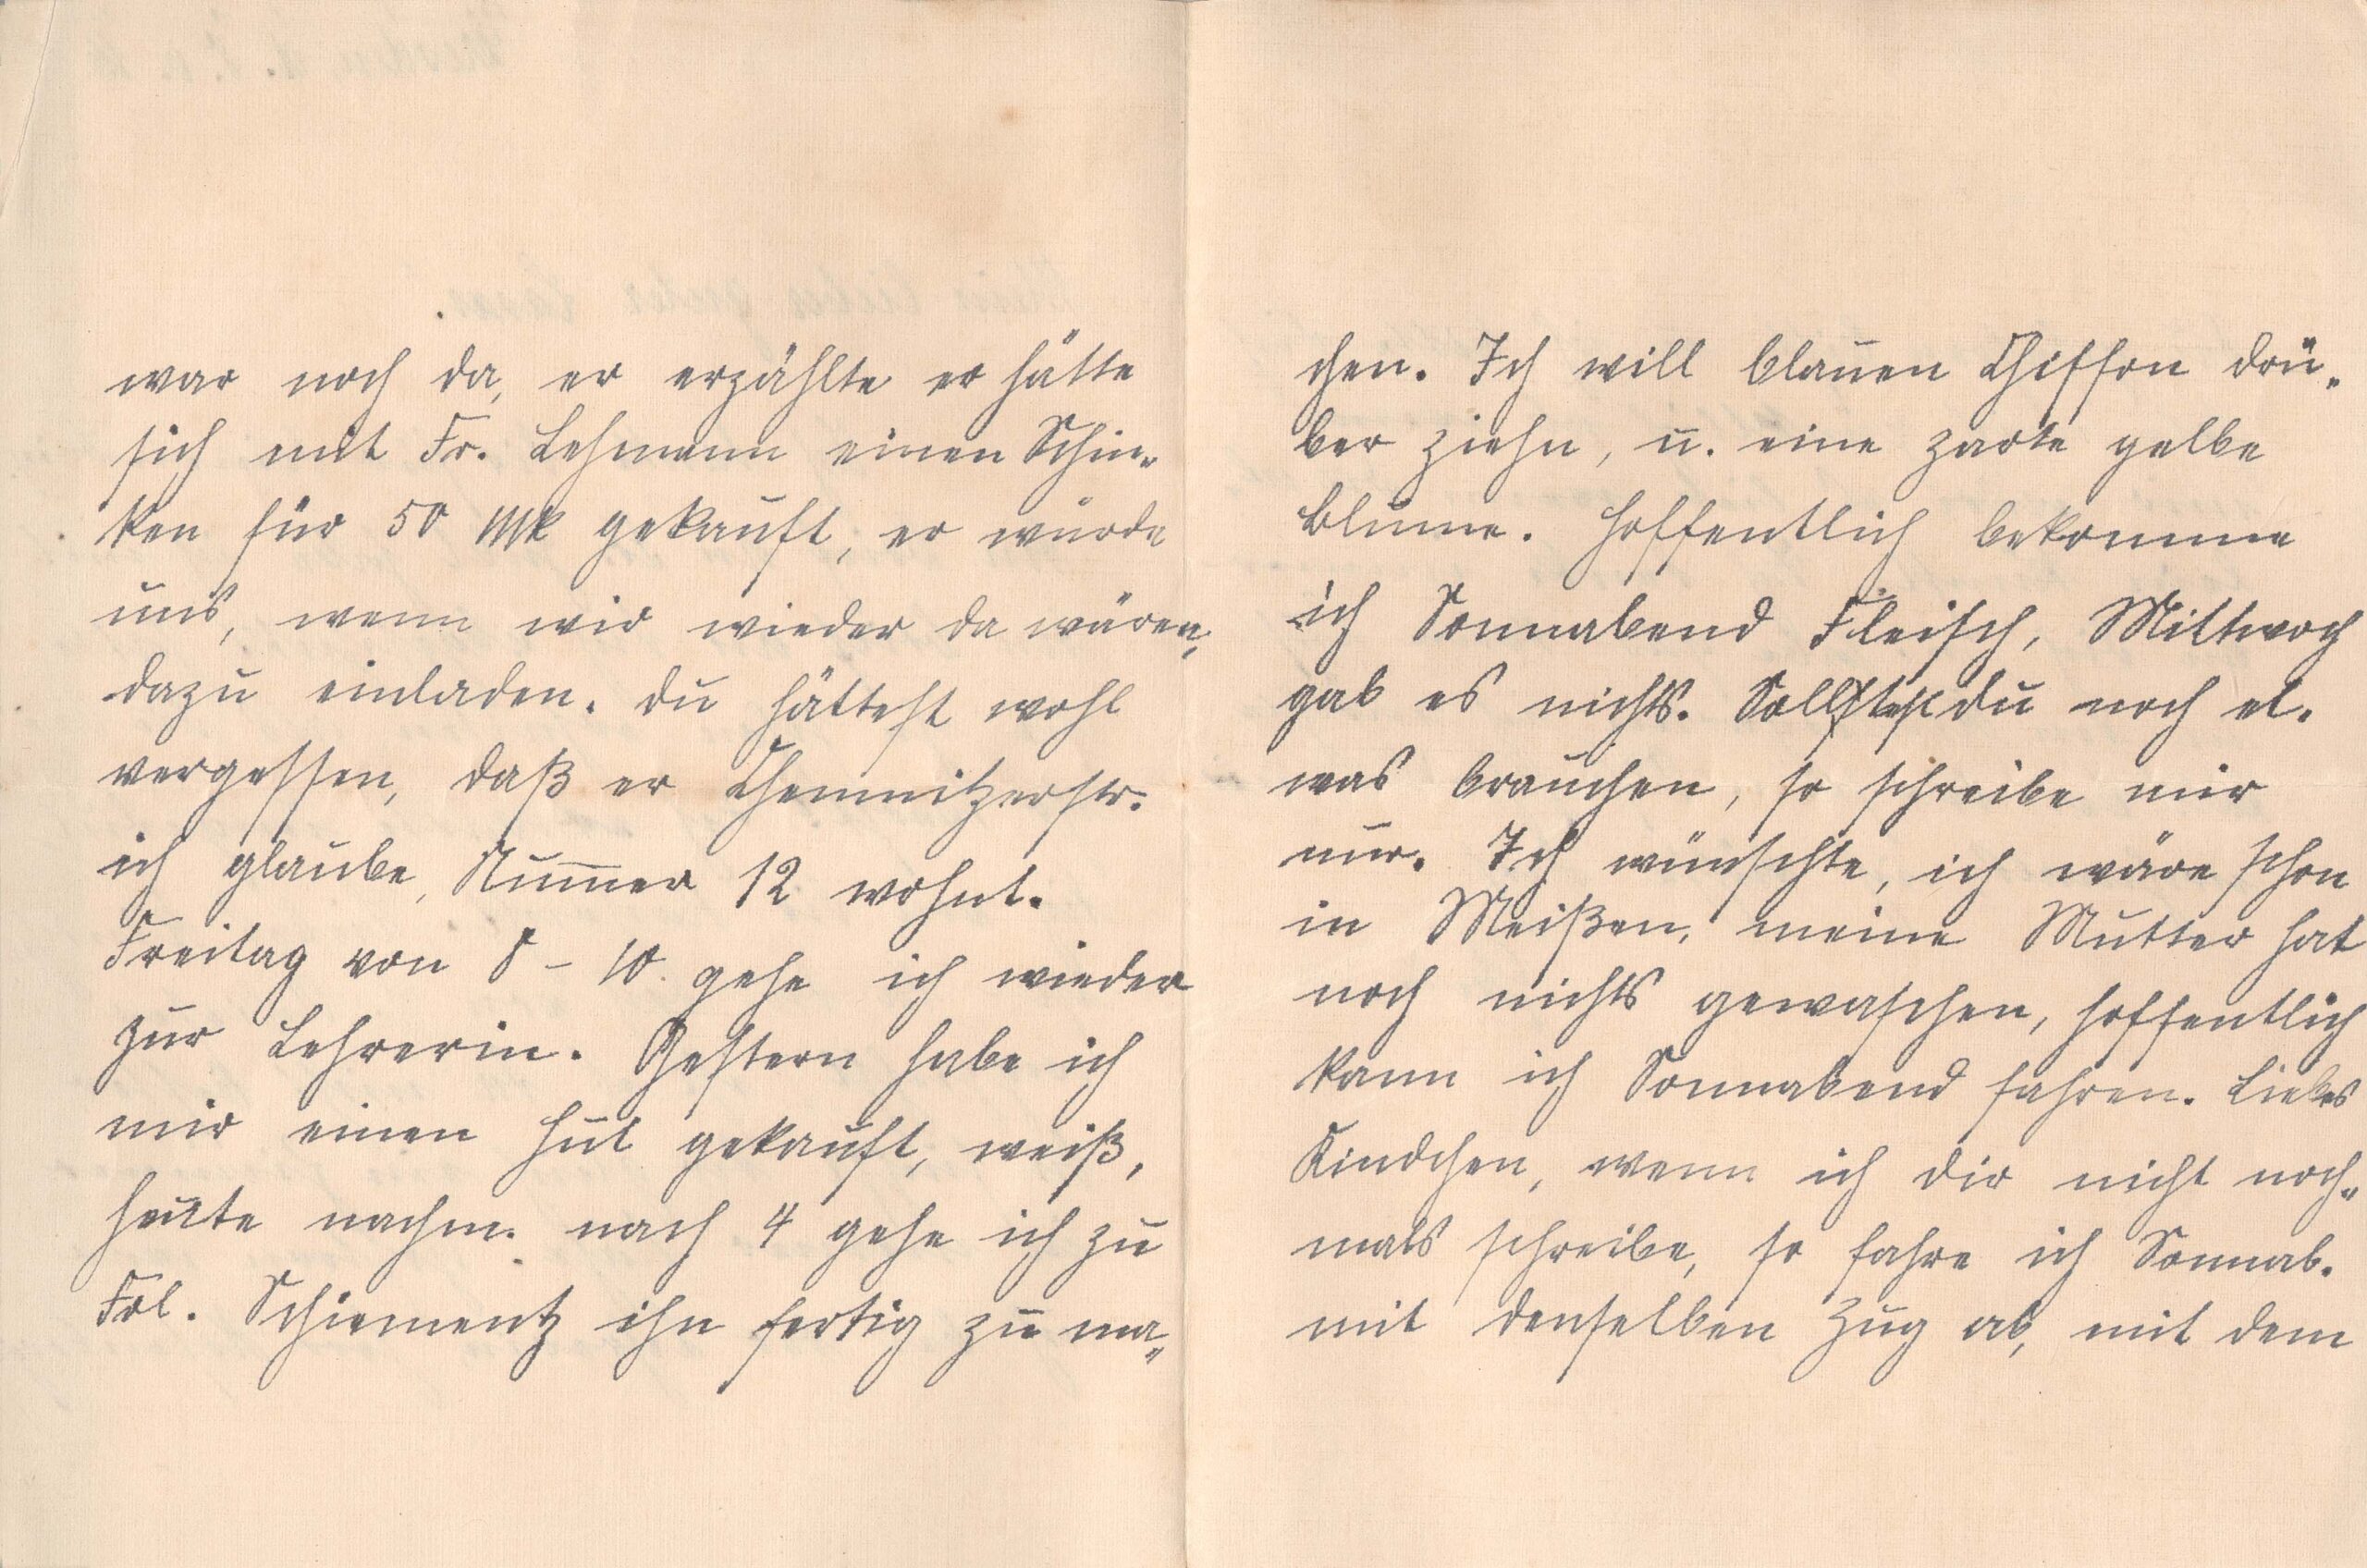 war noch da, er erzählte er hätte
sich mit Fr. Lehmann einen Schin-
ken für 50 Mk gekauft, er würde
uns, wenn wir wieder da wären,
dazu einladen. Du hättest wohl
vergessen, daß er Chemnitzerstr.
ich glaube, Num̅er 12 wohnt.
Freitag von 8 – 10. gehe ich wieder
zur Lehrerin. Gestern habe ich
mir einen Hut gekauft, weiß,
heute nachm. nach 4 gehe ich zu
Frl. Schiementz ihn fertig zu ma-
chen. Ich will blauen Chiffon drü-
ber ziehn, u. eine zarte gelbe
Blume. Hoffentlich bekomme
ich Sonnabend Fleisch, Mittwoch
gab es nichts. Solltest du noch et-
was brauchen, so schreibe mir
nur. Ich wünschte, ich wäre schon
in Meißen, meine Mutter hat
noch nichts gewaschen, hoffentlich
kann ich Sonnabend fahren. Liebes
Kindchen, wenn ich dir nicht noch-
mals schreibe, so fahre ich Sonnab.
mit denselben Zug ab, mit dem